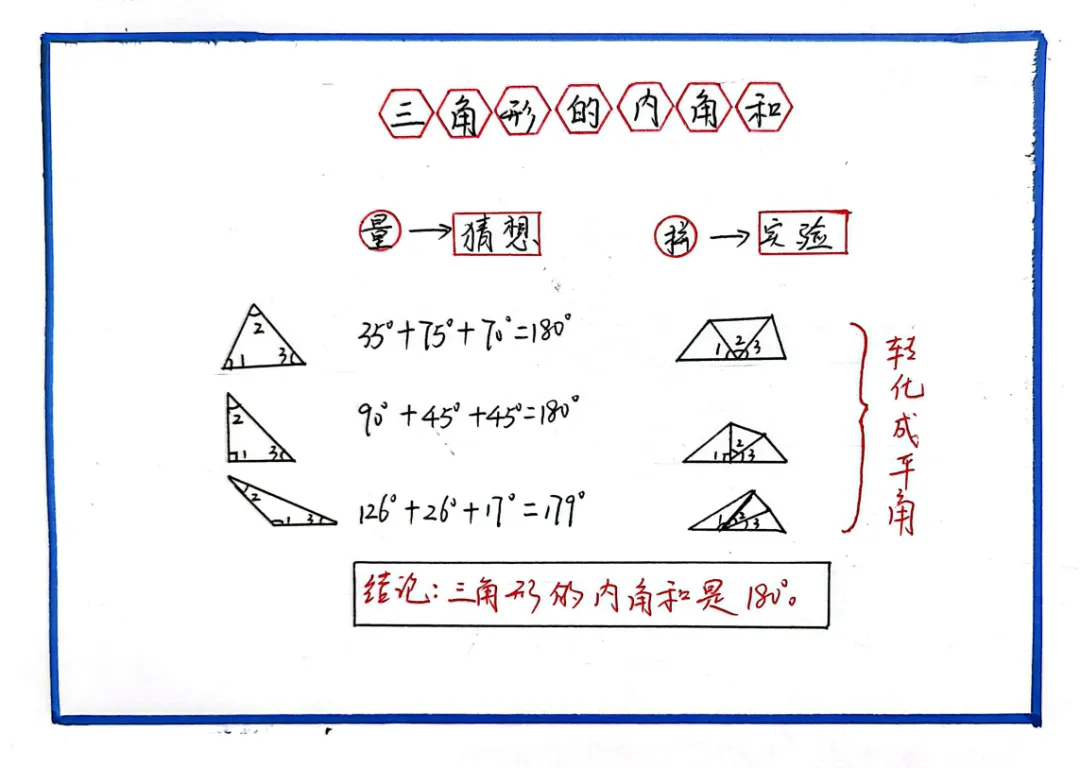 三角形的内角和
量→猜想
拼→实验
2
1 3
35°+75°+70°=180°
1 2 3
2
1 3
90°+45°+45°=180°
1 2 3
2
1 3
126°+26°+17°=179°
1 2 3
转化成平角
结论:三角形的内角和是180°。